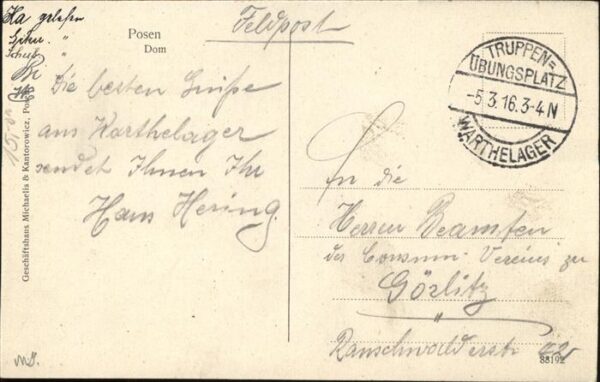 Ha gelesen
"
"
Posen
Dom
Feldpost
TRUPPEN=
ÜBUNGSPLATZ
-5.3.16.3-4N
WARTHELAGER
Die besten Grüße
aus Warthelager
sendet Ihnen Ihr
Hans Hering.
An die
Herren Beamten
des Consum-Vereins zu
Görlitz
"
Rauschwalderstr
88192
Geschäftshaus Michaelis & Kantorowicz, Posen